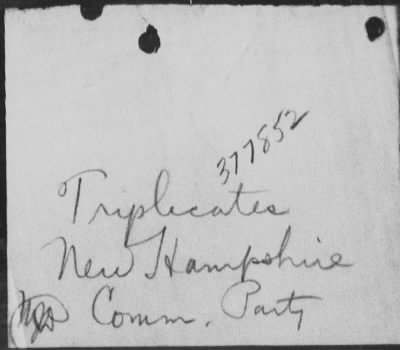 377852
Triplicates
New Hampshire
Comm. Party